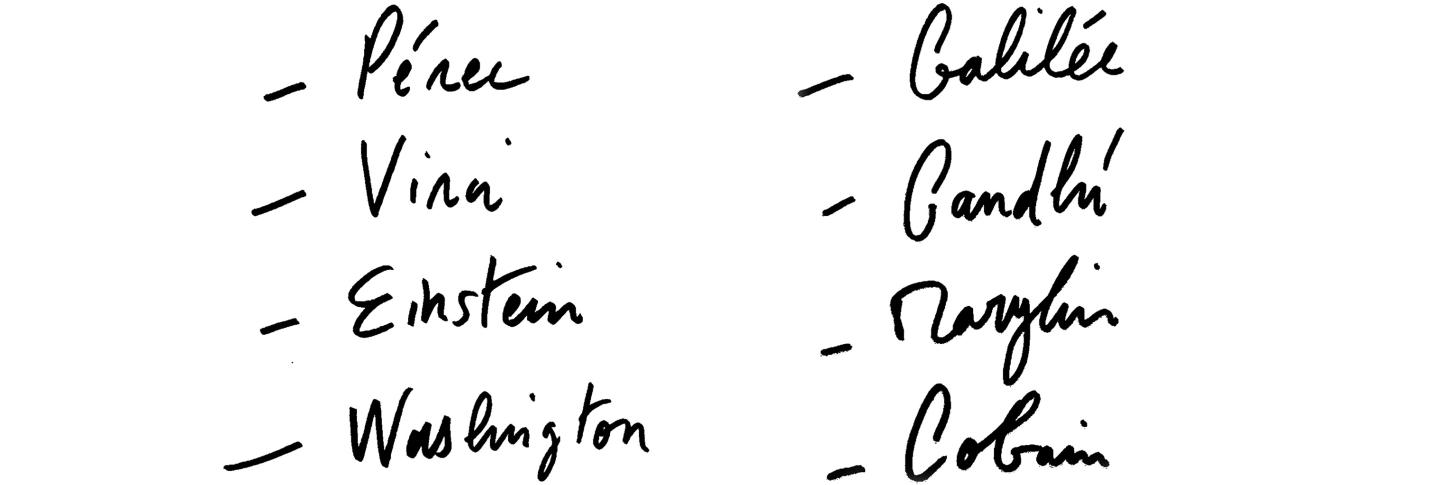 - Pérec
- Virai
- Einstein
- Washington
- Galilée
- Gandhi
- Marylin
- Cobain